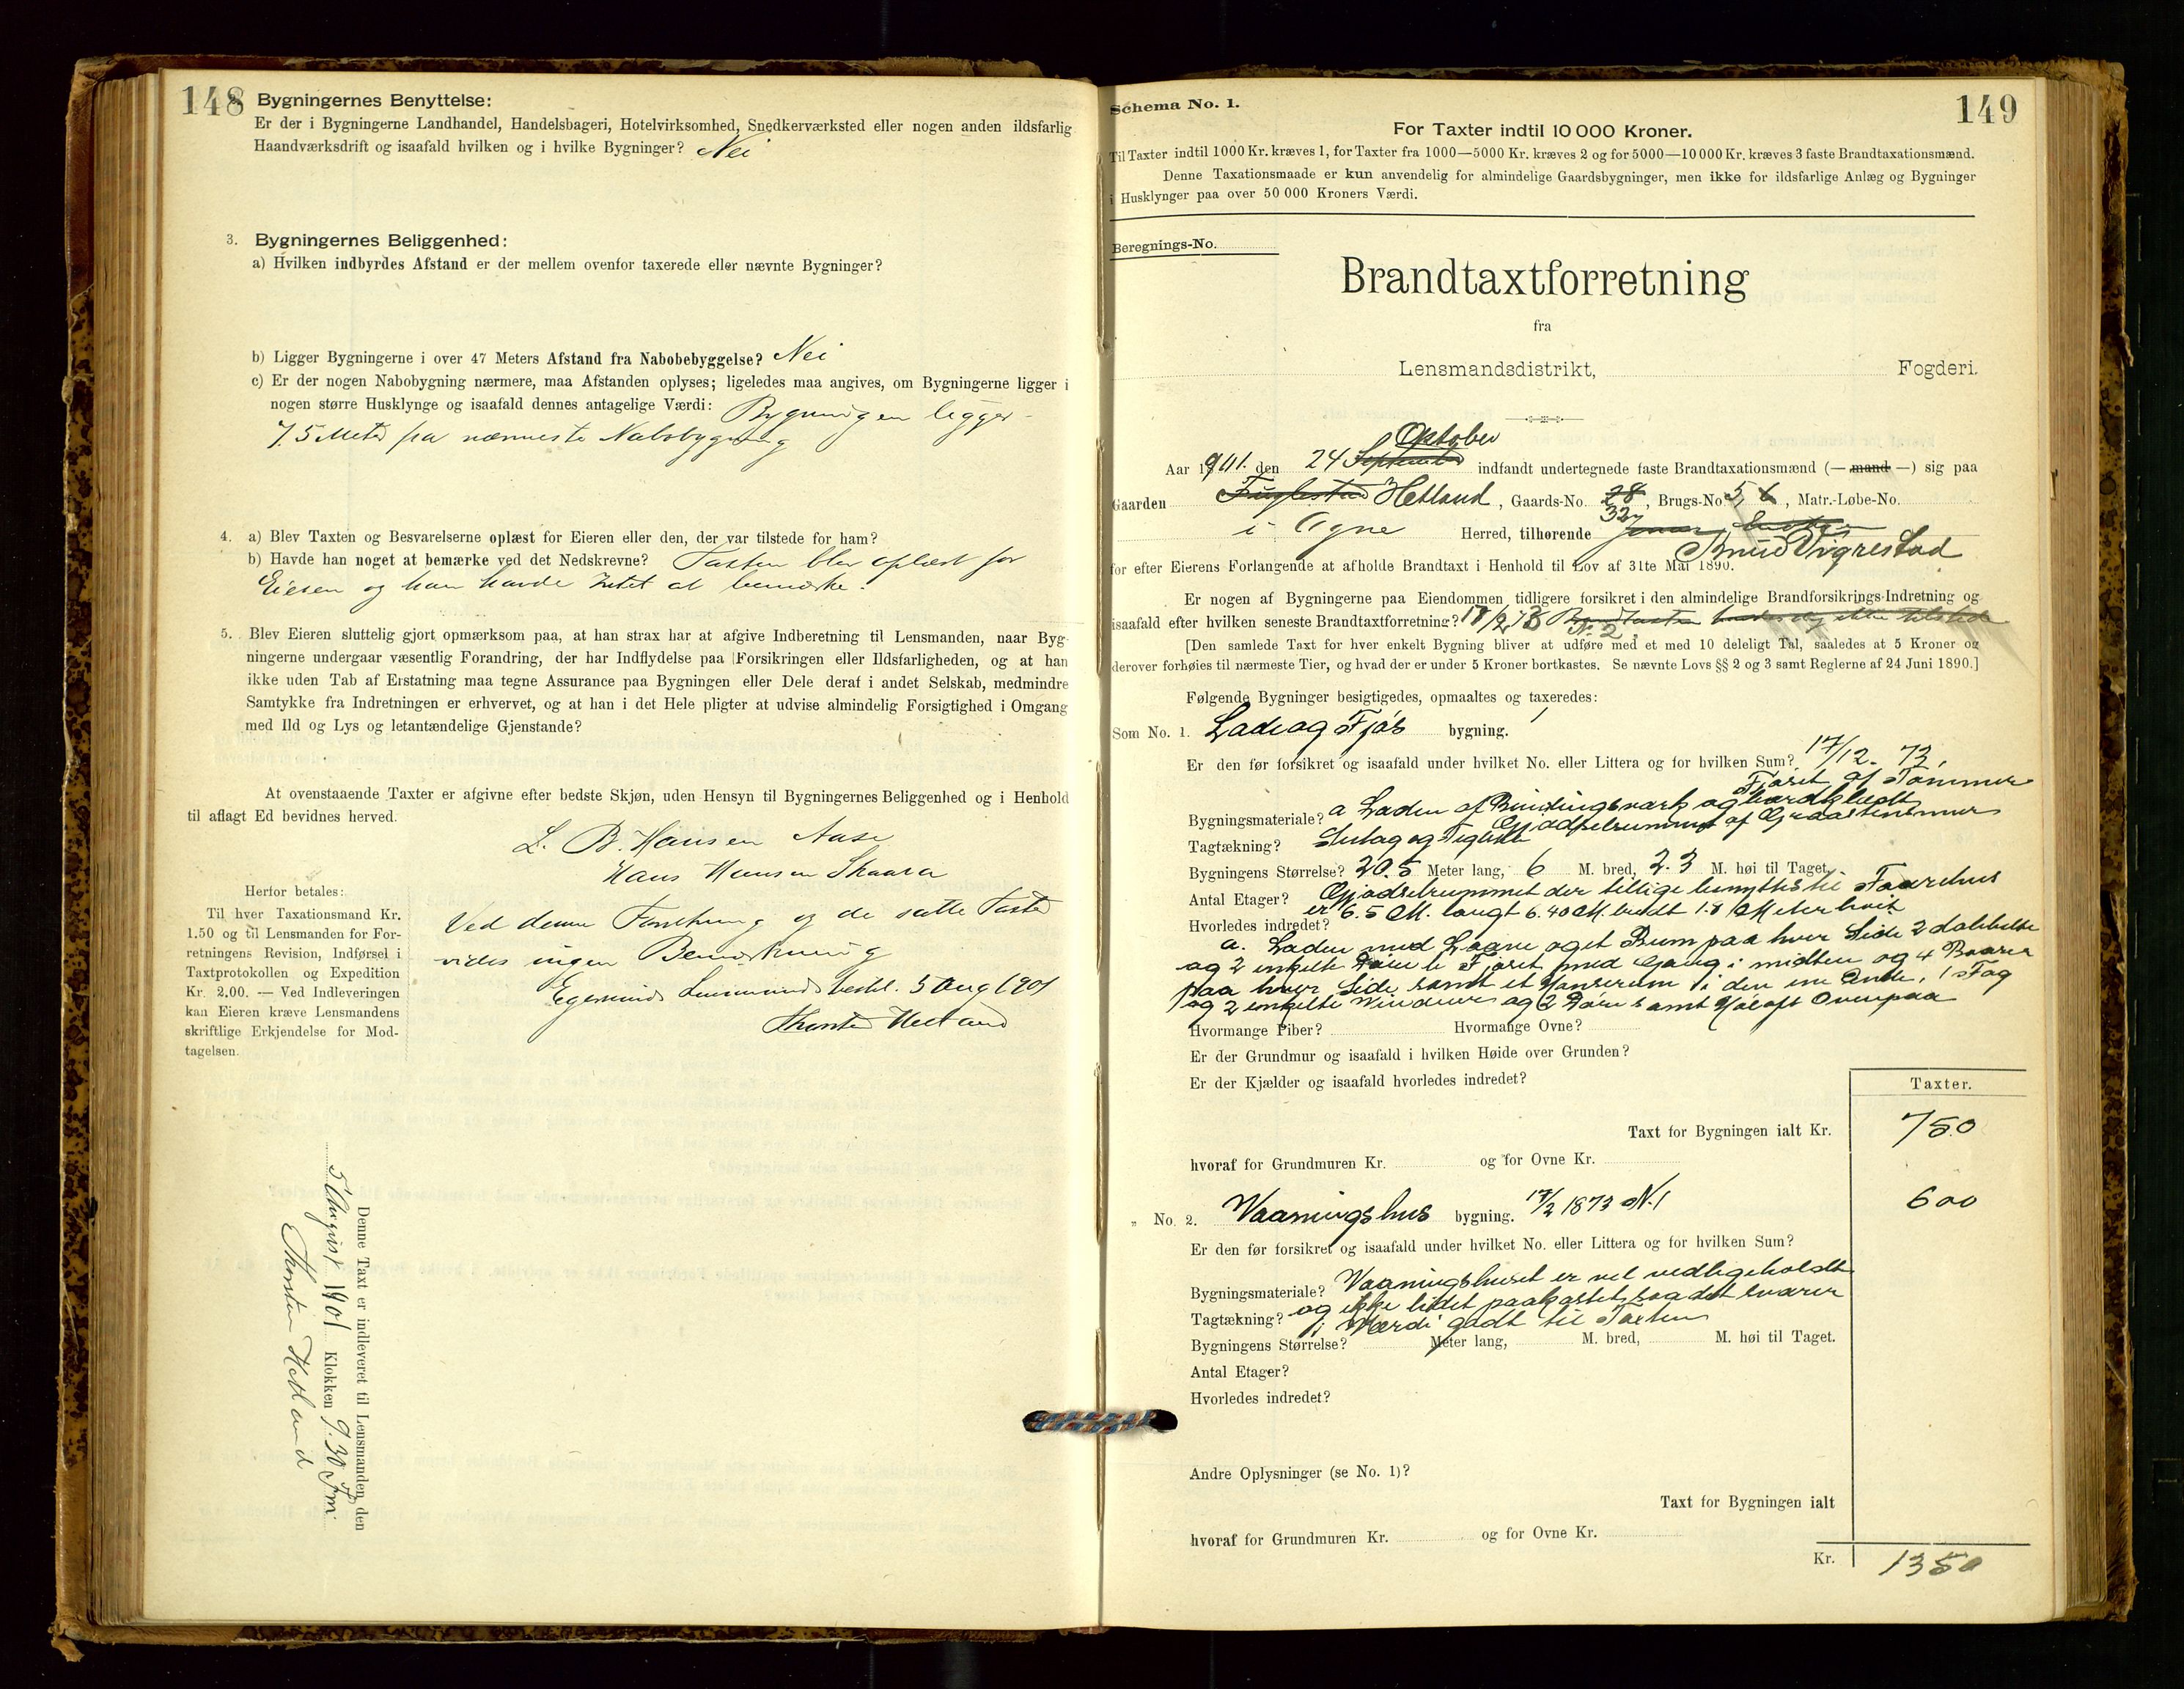 148 Bygningernes Benyttelse:
Er der i Bygningerne Landhandel, Handelsbageri, Hotelvirksomhed, Snedkerværksted eller nogen anden ildsfarlig
Haandværksdrift og isaafald hvilken og i hvilke Bygninger? Nei
3. Bygningernes Beliggenhed:
a) Hvilken indbyrdes Afstand er der mellem ovenfor taxerede eller nævnte Bygninger?
b) Ligger Bygningerne i over 47 Meters Afstand fra Nabobebyggelse? Nei
c) Er der nogen Nabobygning nærmere, maa Afstanden oplyses; ligeledes maa angives, om Bygningerne ligger i
nogen større Husklynge og isaafald dennes antagelige Værdi: Bygningen ligger
7.5 Meter fra nærmeste Nabobygning
4. a) Blev Taxten og Besvarelserne oplæst for Eieren eller den, der var tilstede for ham?
b) Havde han noget at bemærke ved det Nedskrevne? Taxten blev oplæst for
Eieren og han havde Intet at bemærke.
5. Blev Eieren sluttelig gjort opmærksom paa, at han strax har at afgive Indberetning til Lensmanden, naar Byg-
ningerne undergaar væsentlig Forandring, der har Indflydelse paa Forsikringen eller Ildsfarligheden, og at han
ikke uden Tab af Erstatning maa tegne Assurance paa Bygningen eller Dele deraf i andet Selskab, medmindre
Samtykke fra Indretningen er erhvervet, og at han i det Hele pligter at udvise almindelig Forsigtighed i Omgang
med Ild og Lys og letantændelige Gjenstande?
At ovenstaaende Taxter er afgivne efter bedste Skjøn, uden Hensyn til Bygningernes Beliggenhed og i Henhold
til aflagt Ed bevidnes herved.
L. B. Hansen Aase
Hans Hansen Skaara
Herfor betales:
Til hver Taxationsmand Kr.
1.50 og til Lensmanden for For-
retningens Revision, Indførsel i
Taxtprotokollen og Expedition
Kr. 2,00. — Ved Indleveringen
kan Eieren kræve Lensmandens
skriftlige Erkjendelse for Mod-
tagelsen.
Ved denne Forretning og de satte Taxter
vides ingen Bemærkning
Egersunds Lensmandsbestil. 5 Aug 1901
Thorsten Hetland
Denne Taxt er indleveret til Lensmanden den
5 August 1901 Klokken 9.30 Fm
Thorsten Hetland
Schema No. 1. 149
For Taxter indtil 10 000 Kroner.
Til Taxter indtil 1000 Kr. kræves 1, for Taxter fra 1000—5000 Kr. kræves 2 og for 5000—10 000 Kr. kræves 3 faste Brandtaxationsmænd.
Denne Taxationsmaade er kun anvendelig for almindelige Gaardsbygninger, men ikke for ildsfarlige Anlæg og Bygninger
i Husklynger paa over 50 000 Kroners Værdi.
Beregnings-No.
Brandtaxtforretning
fra
Lensmandsdistrikt, Fogderi.
Oktober
Aar 1901. den 24 September indfandt undertegnede faste Brandtaxationsmænd (— mand —) sig paa
Gaarden Fuglestad Hetland, Gaards-No. 28, Brugs-No. 5, 6, Matr.-Løbe-No.
32
i Ogne Herred, tilhørende
Knud Vigrestad
for efter Eierens Forlangende at afholde Brandtaxt i Henhold til Lov af 31te Mai 1890.
Er nogen af Bygningerne paa Eiendommen tidligere forsikret i den almindelige Brandforsikrings-Indretning og
isaafald efter hvilken seneste Brandtaxtforretning? 17/12 73 Brandtaxten ikke tilstede
No 2
[Den samlede Taxt for hver enkelt Bygning bliver at udføre med et med 10 deleligt Tal, saaledes at 5 Kroner og
derover forhøies til nærmeste Tier, og hvad der er under 5 Kroner bortkastes. Se nævnte Lovs §§ 2 og 3 samt Reglerne af 24 Juni 1890.]
Følgende Bygninger besigtigedes, opmaaltes og taxeredes:
Som No. 1. Lade og Fjøs bygning.
Er den før forsikret og isaafald under hvilket No. eller Littera og for hvilken Sum? 17/12. 73,
Fjøset af Tømmer
Bygningsmateriale? a Laden af Bindingsværk og bordklædt
Gjødselrummet af Graastensmur
Tagtækning? og Teglsten
Bygningens Størrelse? 20.5 Meter lang, 6 M. bred, 2.3 M. høi til Taget.
Antal Etager? Gjødselrummet der tillige benyttes til Faarehus
er 6.5 M. langt 6.40 M. bredt 1.8 Meter høit
Hvorledes indredet?
a. Laden med Laave og et Rum paa hver Side 2 dobbelte
og 2 enkelte Døre b Fjøset med Gang i midten og 4 Baase
paa hver Side samt et i den ene Ende, 1 Fag
og 2 enkelte Vinduer og 2 Døre samt Høloft Ovenpaa
Hvormange Piber? Hvormange Ovne?
Er der Grundmur og isaafald i hvilken Høide over Grunden?
Er der Kjælder og isaafald hvorledes indredet?
Taxter.
Taxt for Bygningen ialt Kr. 750
hvoraf for Grundmuren Kr. og for Ovne Kr.
„ No. 2. Vaaningshus bygning. 17/2 1873 N.1 600
Er den før forsikret og isaafald under hvilket No. eller Littera og for hvilken Sum?
Bygningsmateriale? Vaaningshuset er vel vedligeholdt
Tagtækning? og ikke lidet paakostet, saa det svarer
i Værdi godt til Taxten
Bygningens Størrelse? Meter lang, M. bred, M. høi til Taget.
Antal Etager?
Hvorledes indredet?
Andre Oplysninger (se No. 1)?
Taxt for Bygningen ialt
hvoraf for Grundmuren Kr. og for Ovne Kr.
Kr. 1350